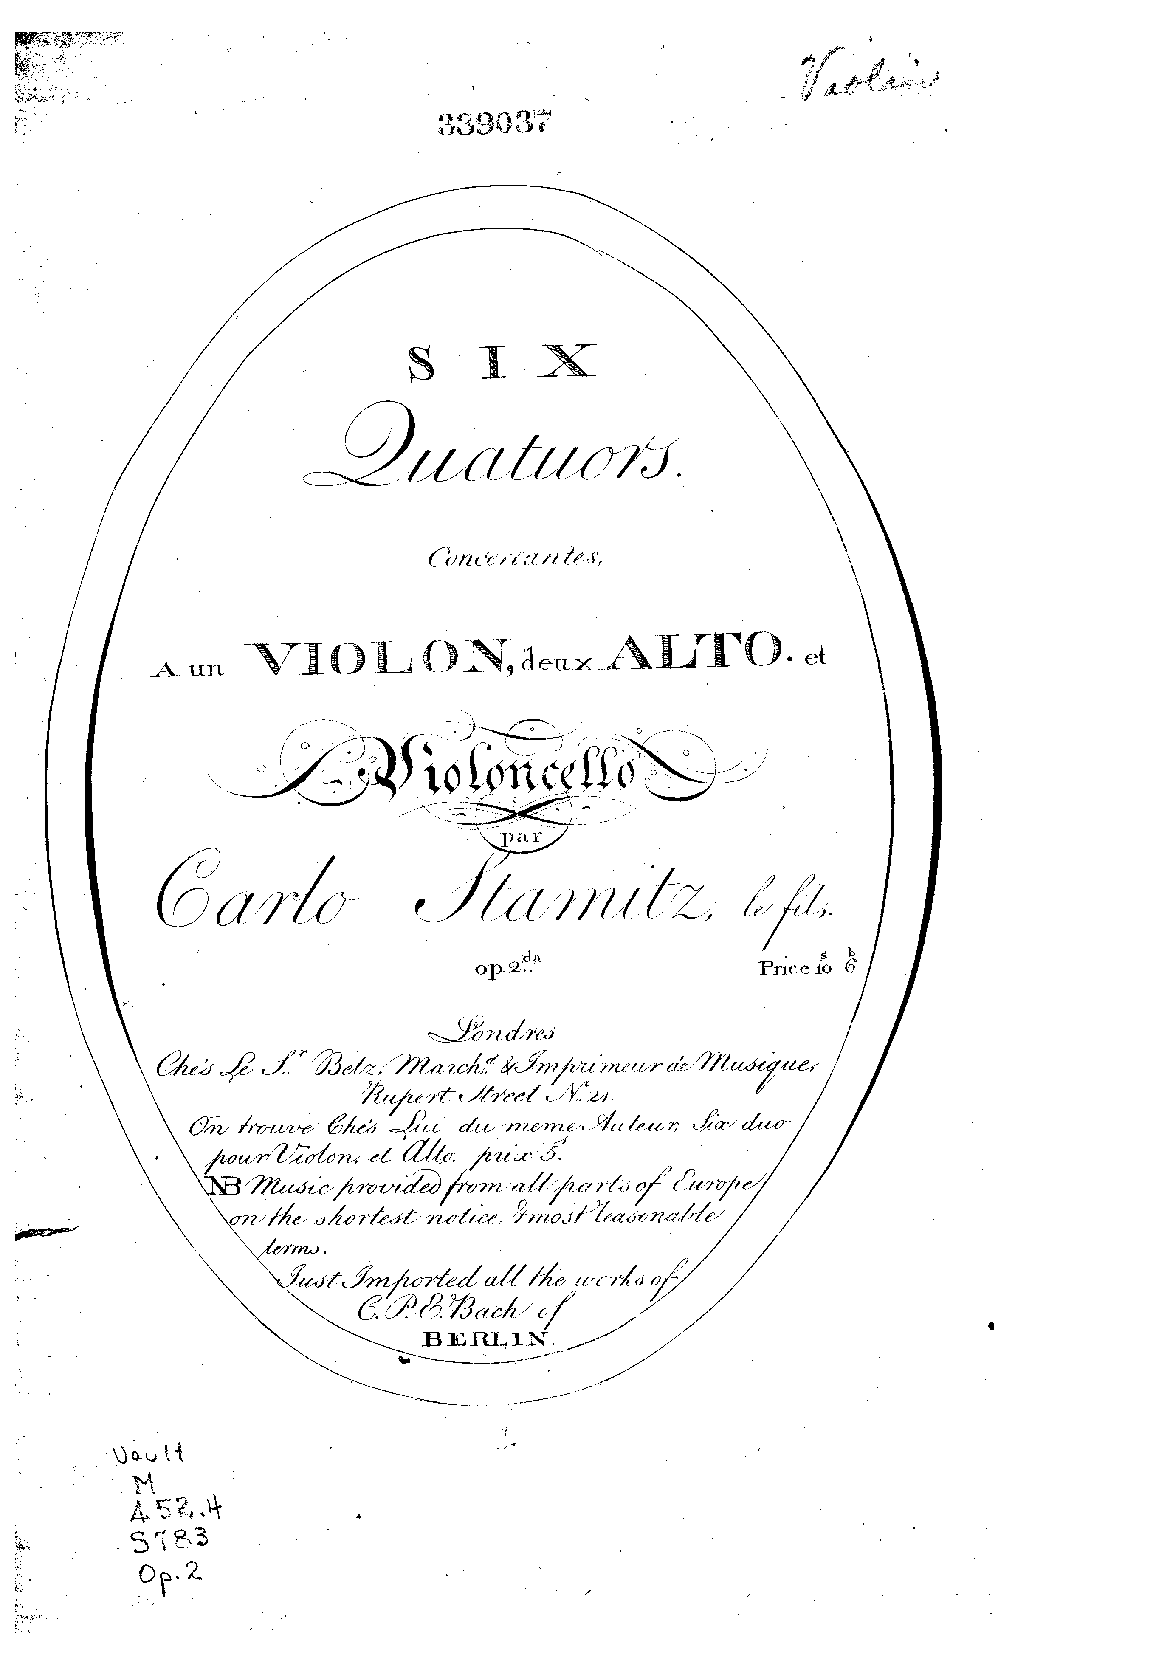 Violin
339037
SIX
Quatuors.
Concertantes,
A un VIOLON, deux ALTO. et
Violoncello
par
Carlo Stamitz, le fils.
op. 2.da
Price 10s 6
Londres
Chés Le Sr. Betz, Marchd. & Imprimeur de Musique,
Rupert Street No. 21.
On trouve Chés Lui du meme Auteur, Six duo
pour Violon, et Alto. prix 5s.
NB Music provided from all parts of Europe
on the shortest notice, & most reasonable
terms.
Just Imported all the works of
C. P. E. Bach of
BERLIN.
Vault
M
A52.4
S783
Op.2